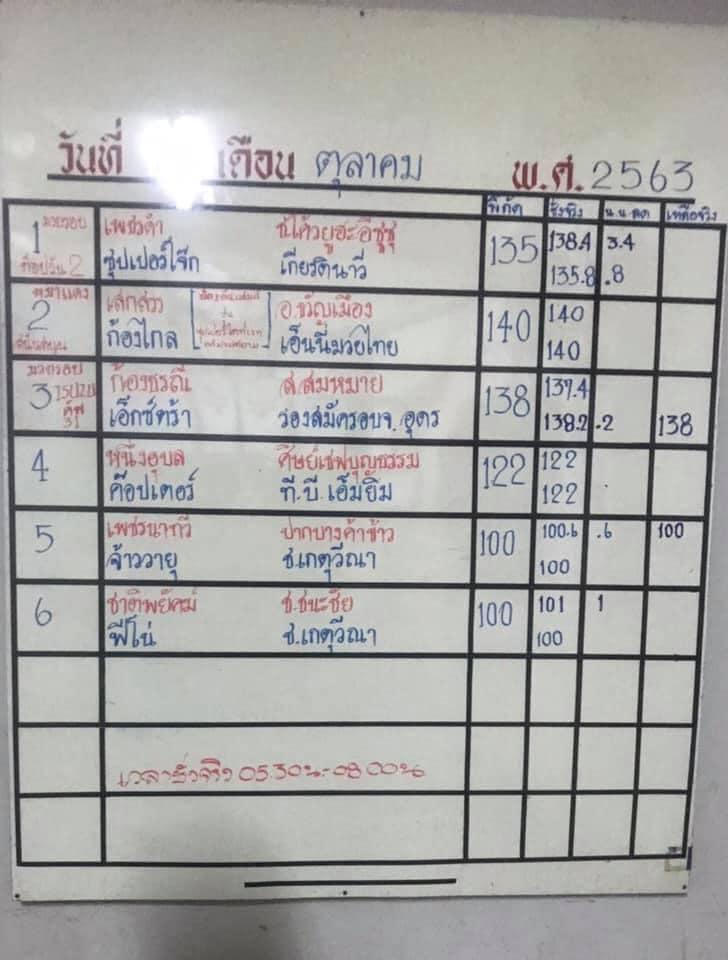 วันที่ เดือน ตุลาคม พ.ศ. 2563
พิกัด ชั่งจริง น.น.ลด เหลือจริง
1 มวยรอบ เพชรดำ 135 138.4 3.4
2 ซุปเปอร์โจ๊ก เกียรตินาวี 135.8 .8
2 เสกสรร อ.ขวัญเมือง 140 140
ก้องไกล เอ็นนี่มวยไทย 140
3 มวยรอบ ก้องธรณี ส.สมหมาย 138 139.4
เอ็กซ์ตร้า รองสมัครอบจ.อุดร 138.2 .2 138
4 หนึ่งอุบล ศิษย์เชฟบุญธรรม 122 122
ค๊อปเตอร์ ที.บี.เอ็มยิม 122
5 ปากบางค้าข้าว 100 100.6 .6 100
จ้าววายุ ช.เกตุวีณา 100
6 ชาติพยัคฆ์ ช.ชนะชัย 100 101 1
ฟีโน่ ช.เกตุวีณา 100
เวลาชั่งจริง 05.30น.-08.00น.